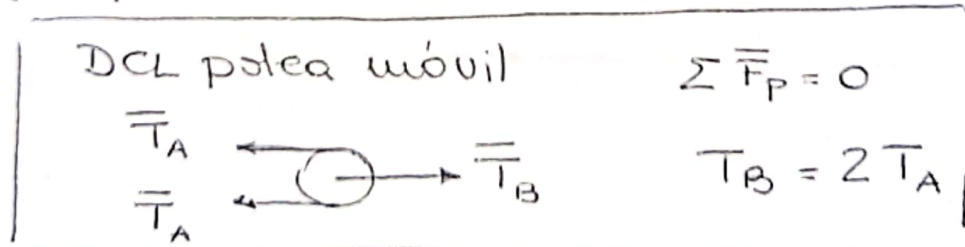 DCL polea móvil
Σ F̿_P = 0
T̿_A
T̿_B
T_B = 2 T_A
T̿_A